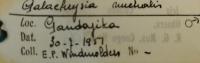 Galacheysia nuchalis ♂
Loc. Gandajika
Dat. 30-7-1957
Coll. E.P. Windmolders No -